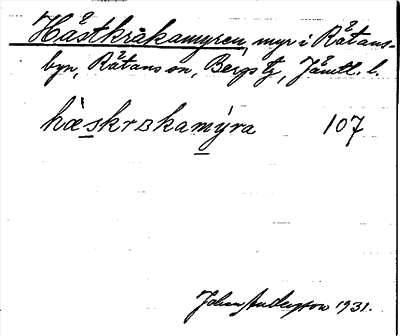 Håstkråkamyren, myr i Råtans-
byn, Råtans sn, Bergs tg, Jämtl. l.
hæskrɞkamýra 107
Johan Anderson 1931.